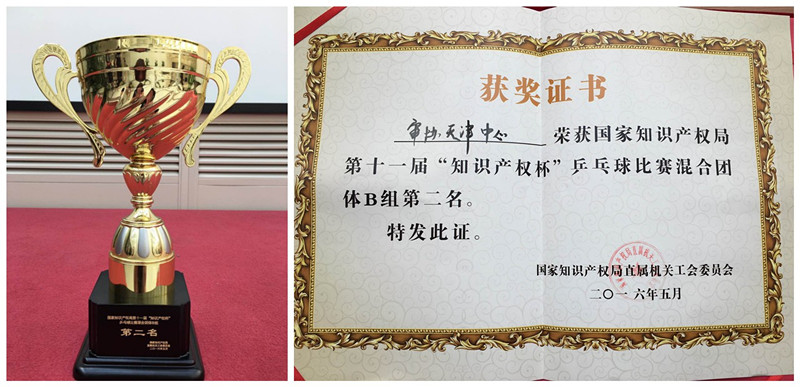 国家知识产权局第十一届“知识产权杯”
第二名
获奖证书
审协天津中心 荣获国家知识产权局
第十一届“知识产权杯”乒乓球比赛混合团
体B组第二名。
特发此证。
国家知识产权局直属机关工会委员会
二〇一六年五月